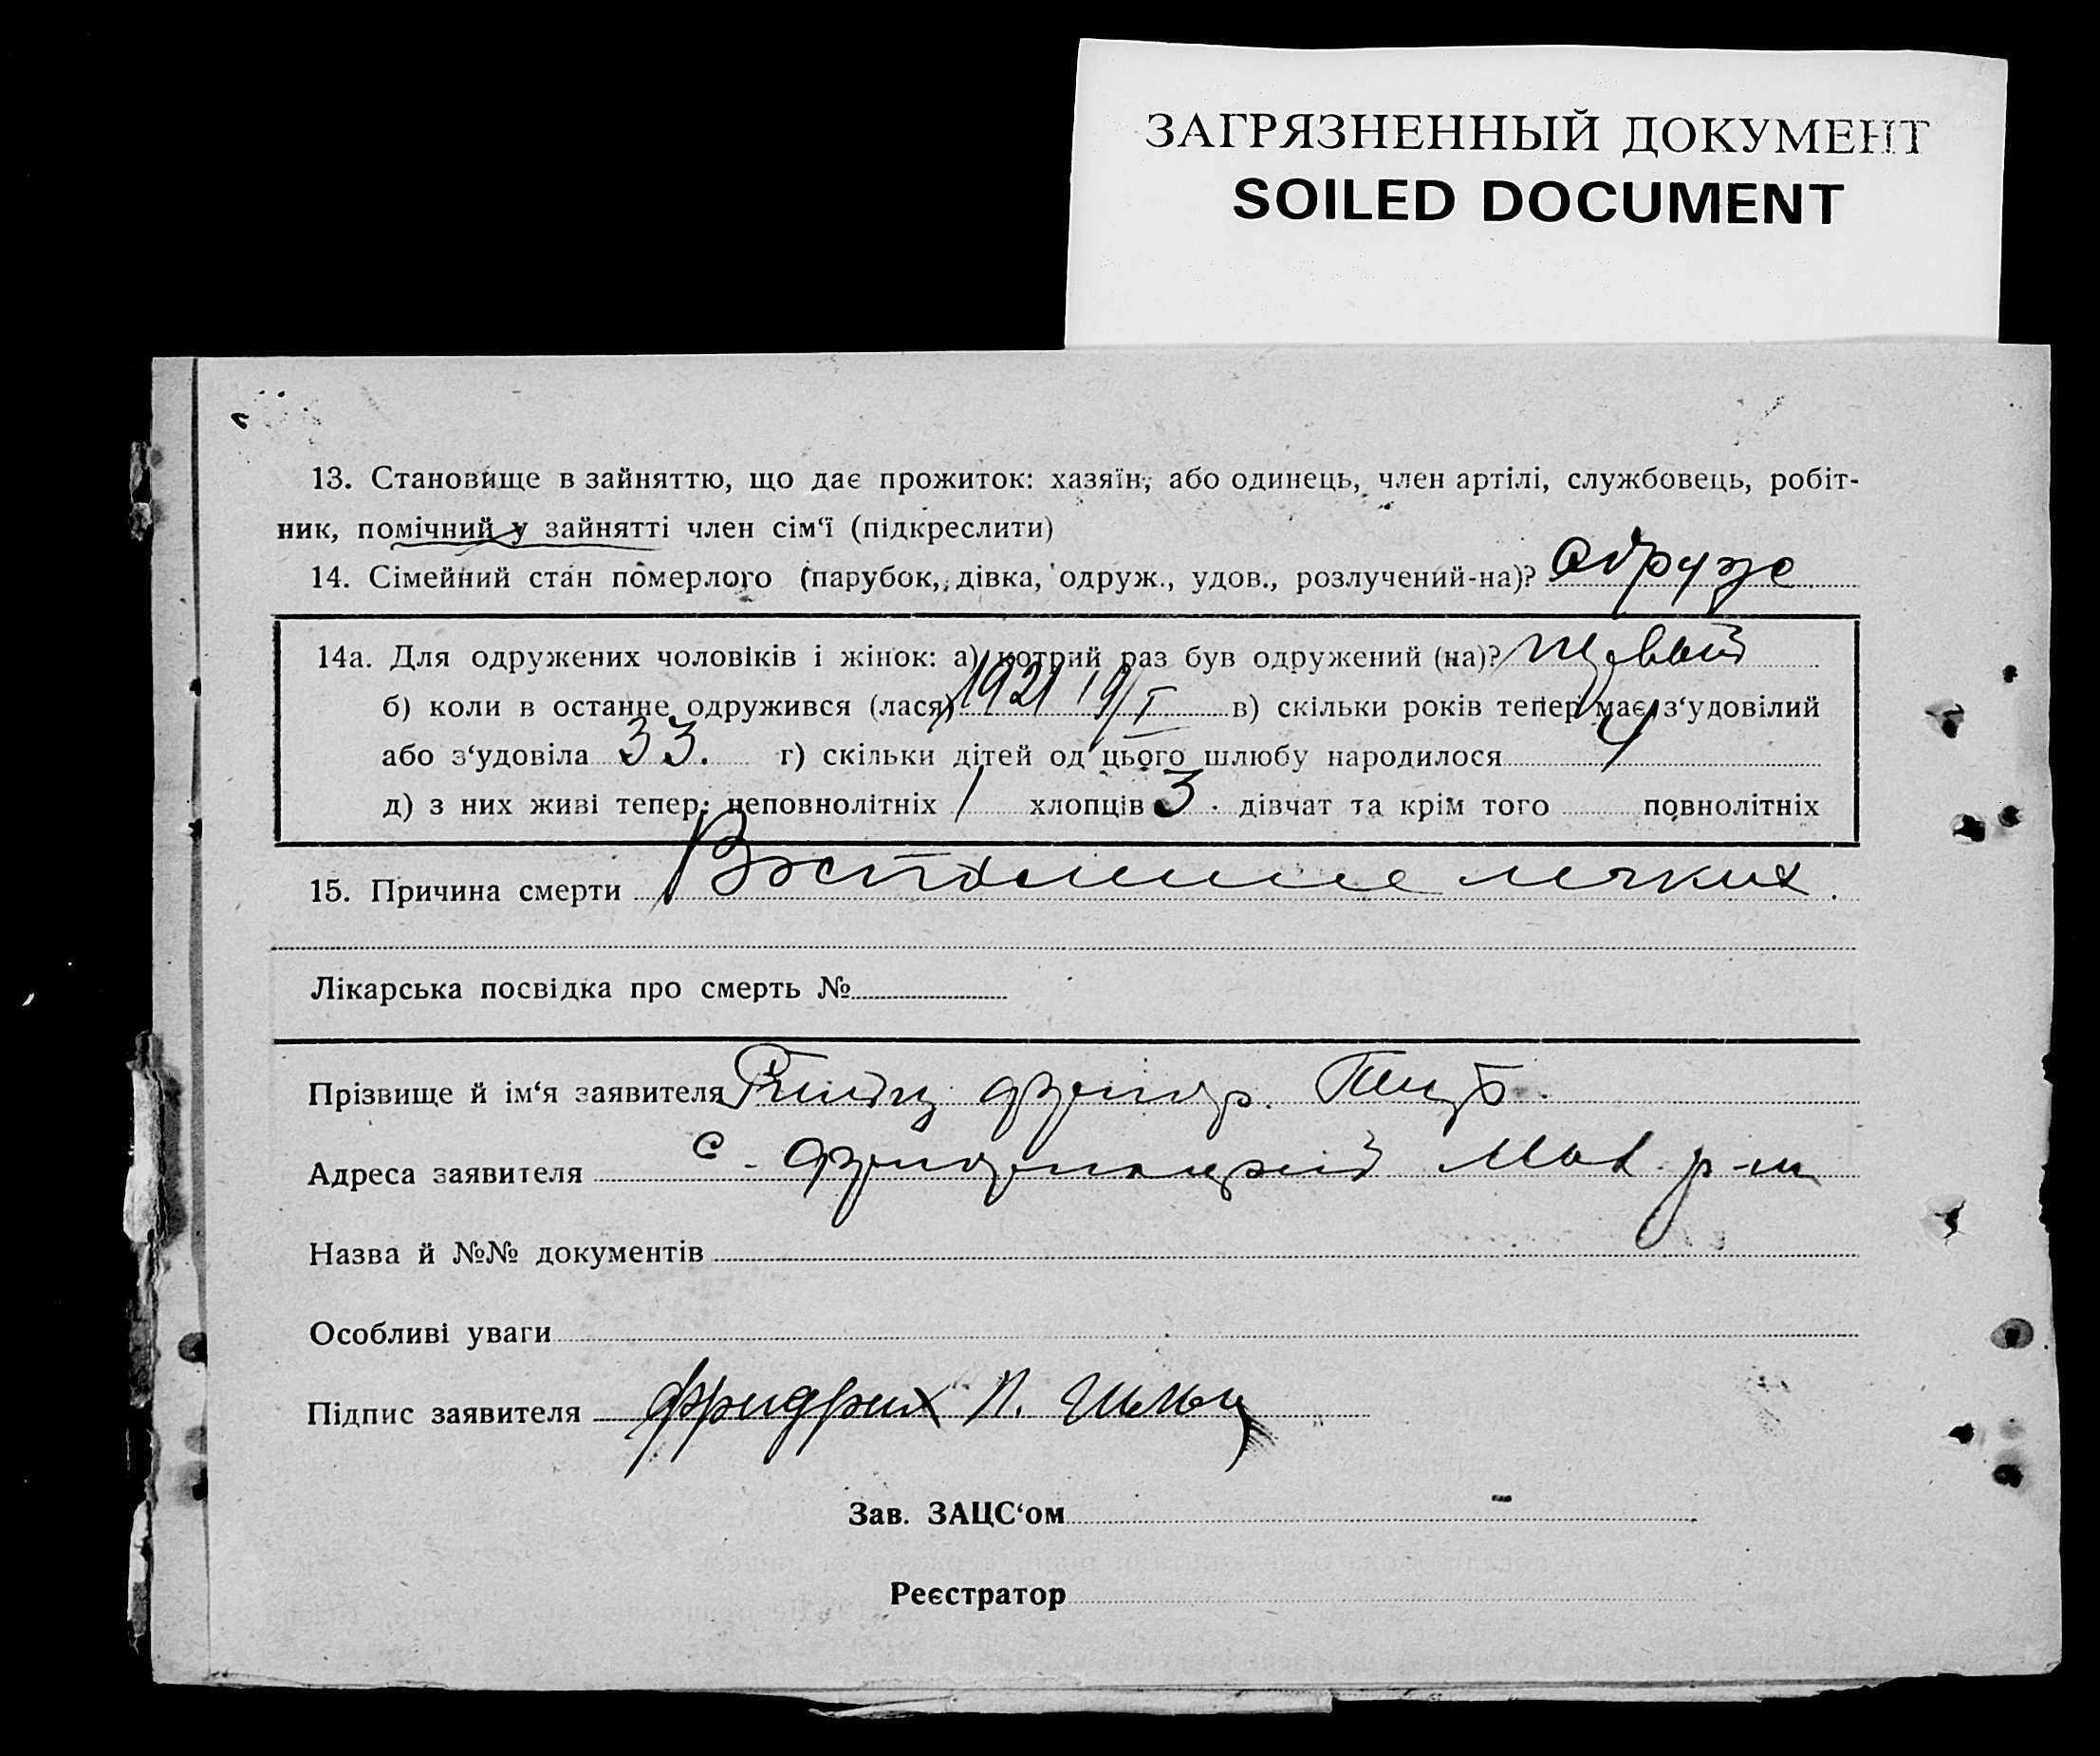 ЗАГРЯЗНЕННЫЙ ДОКУМЕНТ
SOILED DOCUMENT
13. Становище в зайняттю, що дає прожиток: хазяїн, або одинець, член артілі, службовець, робіт-
ник, помічний у зайнятті член сім‘ї (підкреслити)
14. Сімейний стан померлого (парубок, дівка, одруж., удов., розлучений-на)? одруже
14а. Для одружених чоловіків і жінок: а) котрий раз був одружений (на)?
б) коли в останнє одружився (лася) 1921 19/I в) скільки років тепер має з‘удовілий
або з‘удовіла 33. г) скільки дітей од цього шлюбу народилося 4
д) з них живі тепер: неповнолітніх 1 хлопців 3 дівчат та крім того повнолітніх
15. Причина смерти легких.
Лікарська посвідка про смерть №
Прізвище й ім‘я заявителя
Адреса заявителя с. р-ну
Назва й №№ документів
Особливі уваги
Підпис заявителя Фридрих П.
Зав. ЗАЦС‘ом
Реєстратор